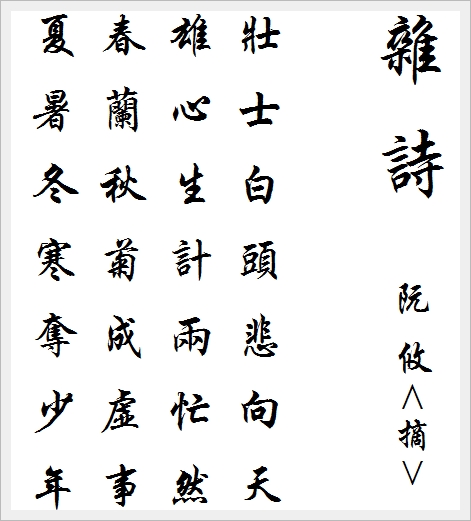 雜詩
阮攸<摘>
壯士白頭悲向天
雄心生計兩忙然
春蘭秋菊成虛事
夏暑冬寒奪少年